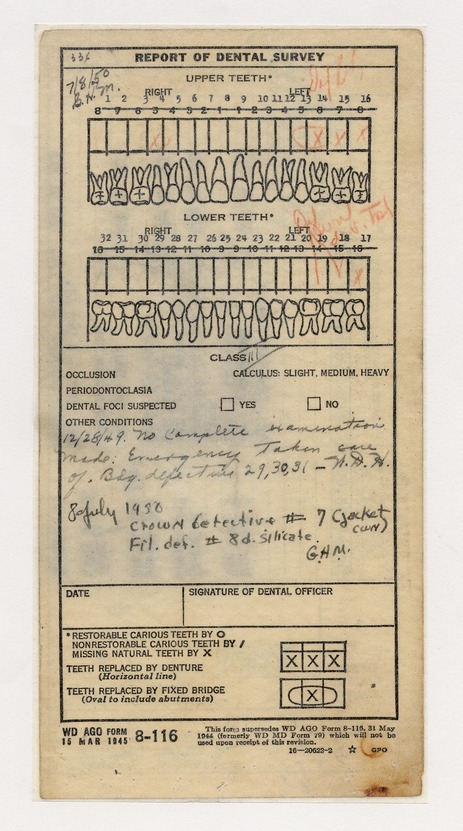 336
REPORT OF DENTAL SURVEY
7/8/50
G.H.M.
UPPER TEETH*
RIGHT LEFT
1 2 3 4 5 6 7 8 9 10 11 12 13 14 15 16
8 7 6 5 4 3 2 1 1 2 3 4 5 6 7 8
X X X
LOWER TEETH*
RIGHT LEFT
32 31 30 29 28 27 26 25 24 23 22 21 20 19 18 17
16 15 14 13 12 11 10 9 9 10 11 12 13 14 15 16
X
CLASS III
OCCLUSION CALCULUS: SLIGHT, MEDIUM, HEAVY
PERIODONTOCLASIA
DENTAL FOCI SUSPECTED YES NO
OTHER CONDITIONS
12/28/49. No Complete examination
made: Emergency Taken care
of. Bdg. defective 29,30,31 —
8 July 1950
Crown defective # 7 (Jacket
cwn)
Fil. def. # 8 d. silicate.
G.H.M.
DATE SIGNATURE OF DENTAL OFFICER
* RESTORABLE CARIOUS TEETH BY O
NONRESTORABLE CARIOUS TEETH BY /
MISSING NATURAL TEETH BY X
TEETH REPLACED BY DENTURE
(Horizontal line)
X X X
TEETH REPLACED BY FIXED BRIDGE
(Oval to include abutments)
X
WD AGO FORM 8-116
15 MAR 1945
This form supersedes WD AGO Form 8-116, 31 May
1944 (formerly WD MD Form 79) which will not be
used upon receipt of this revision.
16—20622-2 ☆ GPO